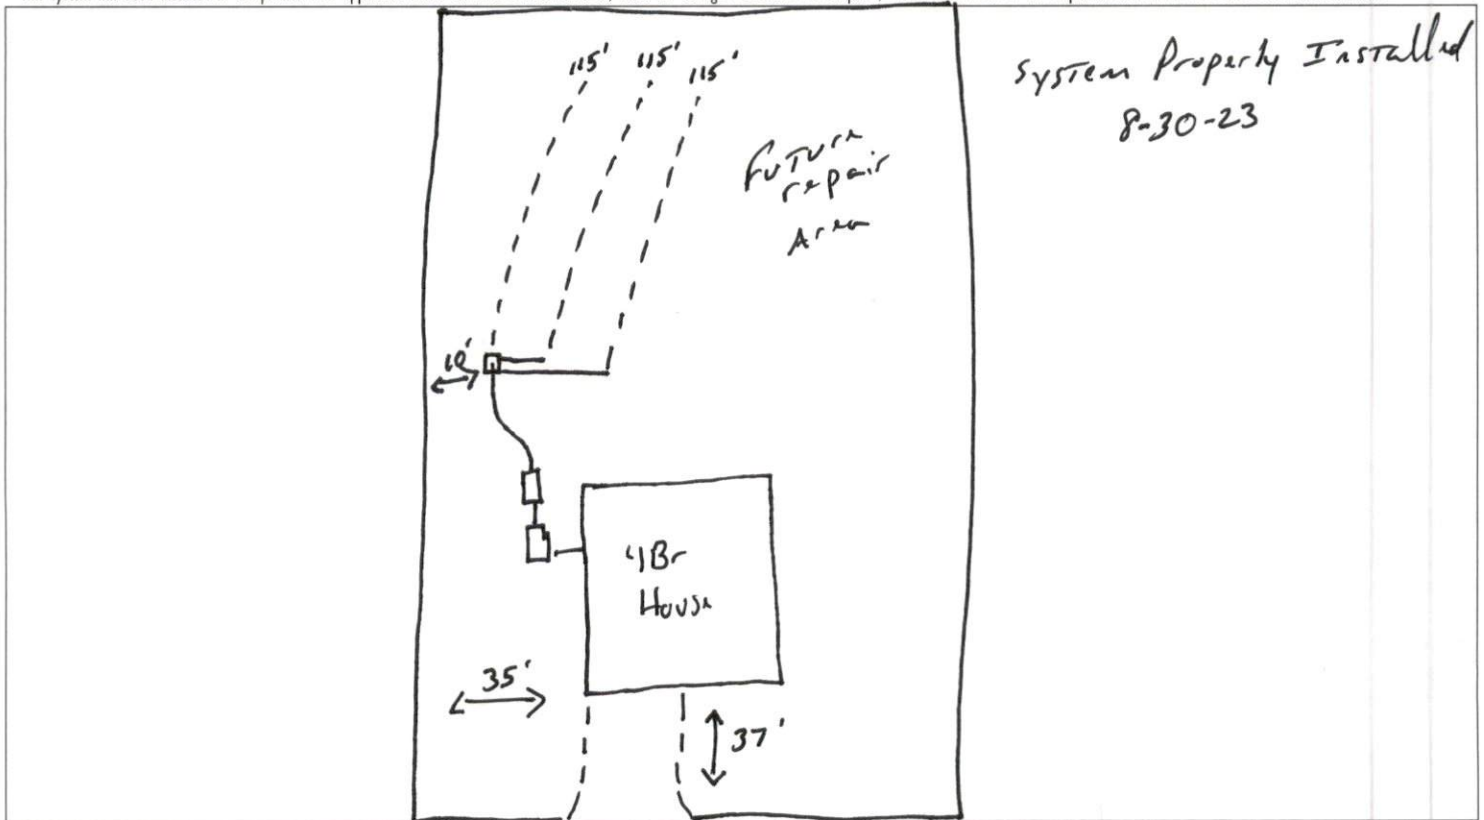 115' 115' 115'
System Properly Installed
8-30-23
Future
repair
Area
10'
4Br
House
35'
37'